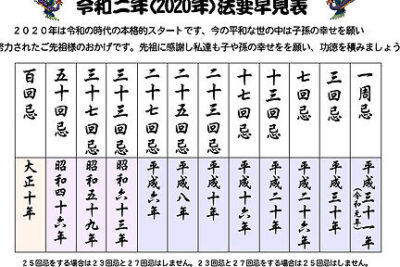 令和二年(2020年)法要早見表
2020年は令和の時代の本格的スタートです、今の平和な世の中は子孫の幸せを願い
努力されたご先祖様のおかげです。先祖に感謝し私達も子や孫の幸せをを願い、功徳を積みましょう
一周忌
平成三十一年
(令和元年)
三回忌
平成三十年
七回忌
平成二十六年
十三回忌
平成二十年
十七回忌
平成十六年
二十三回忌
平成十年
二十五回忌
平成八年
二十七回忌
平成六年
三十三回忌
昭和六十三年
三十七回忌
昭和五十九年
五十回忌
昭和四十六年
百回忌
大正十年
25回忌をする場合は23回忌と27回忌はしません。23回忌と27回忌をする場合は25回忌はしません。